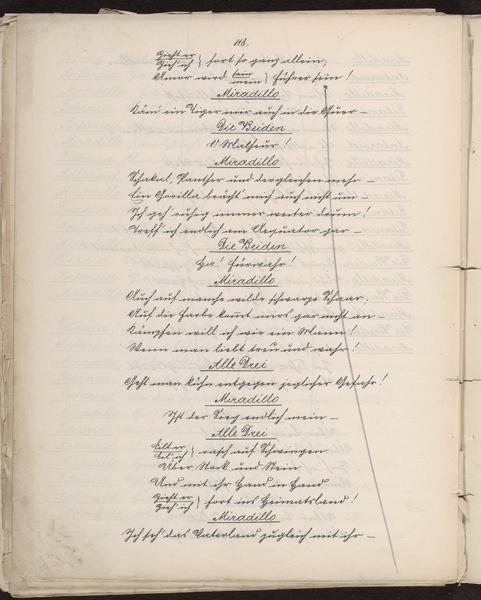 118.
Zieht er / Zieh' ich } fort so ganz allein,
Amor wird sein / mein } Führer sein!
Miradillo
Käm' ein Tiger mir auch in die Quer –
Die Beiden
O Malheur!
Miradillo
Schakal, Panther und dergleichen mehr –
Ein Gorilla brächt' mich auch nicht um –
Ich geh' ruhig immer weiter drum!
Treff' ich endlich am Aequator gar –
Die Beiden
Ha! Fürwahr!
Miradillo
Auch auf manche wilde schwarze Schaar,
Auf die Farbe kommt mir's gar nicht an –
Kämpfen will ich wie ein Mann!
Wenn man liebt treu und wahr!
Alle Drei
Geht man kühn entgegen jeglicher Gefahr!
Miradillo
Ist der Sieg endlich mein –
Alle Drei
Eilt er / Eil' ich } rasch auf Schwingen
Über Stock und Stein
Und mit ihr Hand in Hand
Zieht er / Zieh' ich } fort ins Heimatsland!
Miradillo
Ich seh' das Vaterland zugleich mit ihr –